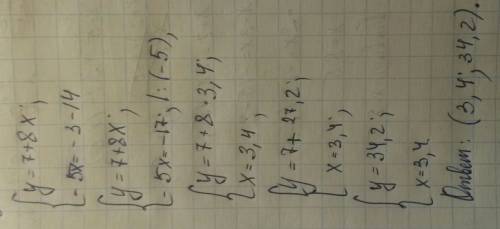 {y=7+8x;
-5x=-3-14
{y=7+8x;
-5x=-17; |:(-5),
{y=7+8·3,4;
x=3,4;
{y=7+27,2;
x=3,4;
{y=34,2;
x=3,4.
Ответ: (3,4; 34,2).